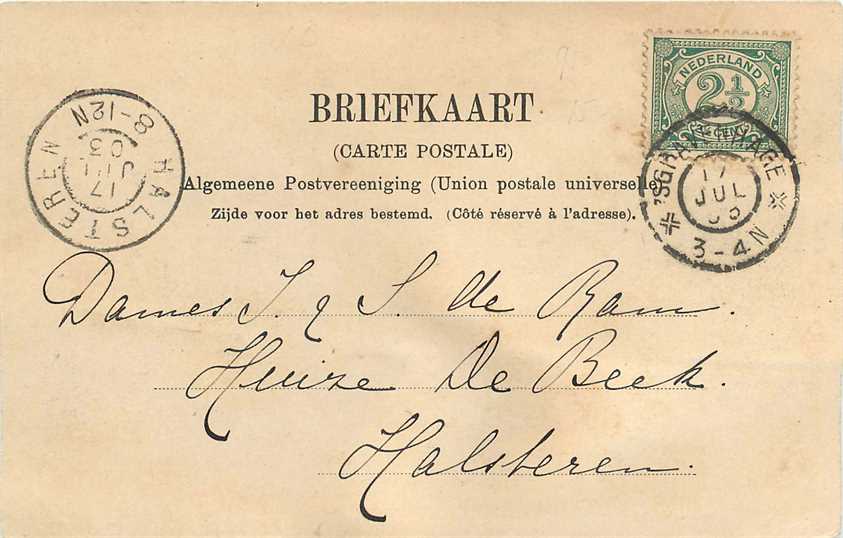 NEDERLAND
2½
CENT
BRIEFKAART
(CARTE POSTALE)
Algemeene Postvereeniging (Union postale universelle)
Zijde voor het adres bestemd. (Côté réservé à l'adresse).
HALSTEREN
17
JUL
03
8-12N
'SGRAVENHAGE
17
JUL
03
3-4N
Dames J. & S. de Ram.
Huize De Beek.
Halsteren.